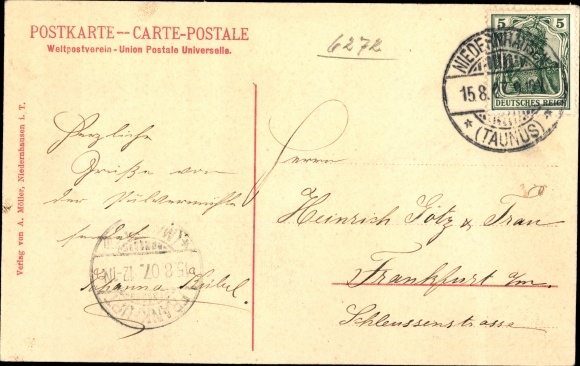 POSTKARTE -- CARTE-POSTALE
Weltpostverein - Union Postale Universelle.
6272
5 5
DEUTSCHES REICH
NIEDERNHAUSEN
15.8.
* (TAUNUS) *
Verlag von A. Möller, Niedernhausen i. T.
Herzliche
Grüße von
der Pulvermühle
sendet
Johanna
15.8.07. 12-1N
Herrn
Heinrich Götz & Frau
Frankfurt a/m.
Schleussenstrasse